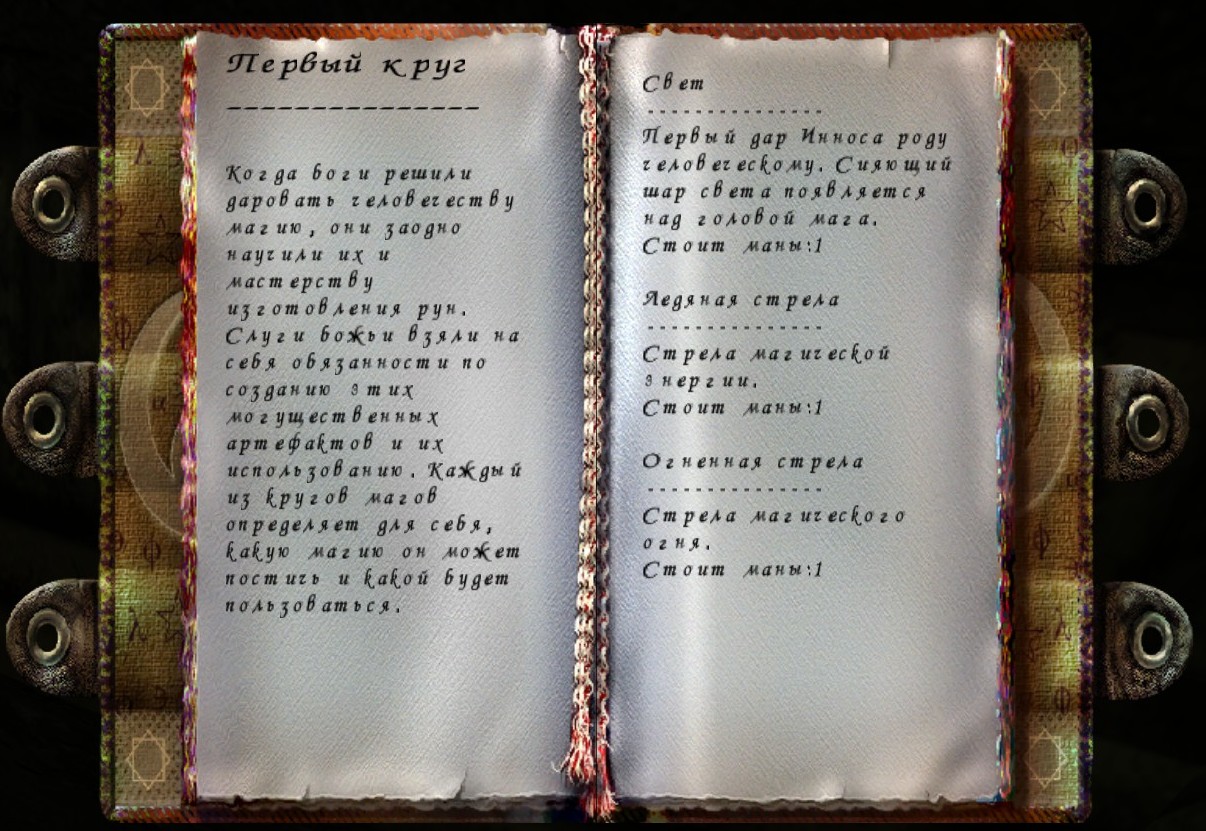 Первый круг
_______________
Когда боги решили
даровать человечеству
магию, они заодно
научили их и
мастерству
изготовления рун.
Слуги божьи взяли на
себя обязанности по
созданию этих
могущественных
артефактов и их
использованию. Каждый
из кругов магов
определяет для себя,
какую магию он может
постичь и какой будет
пользоваться.
Свет
---------------
Первый дар Инноса роду
человеческому. Сияющий
шар света появляется
над головой мага.
Стоит маны:1
Ледяная стрела
---------------
Стрела магической
энергии.
Стоит маны:1
Огненная стрела
---------------
Стрела магического
огня.
Стоит маны:1